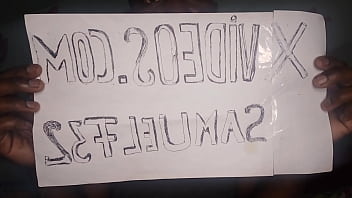 X VIDEOS.COM
SAMUELFF32